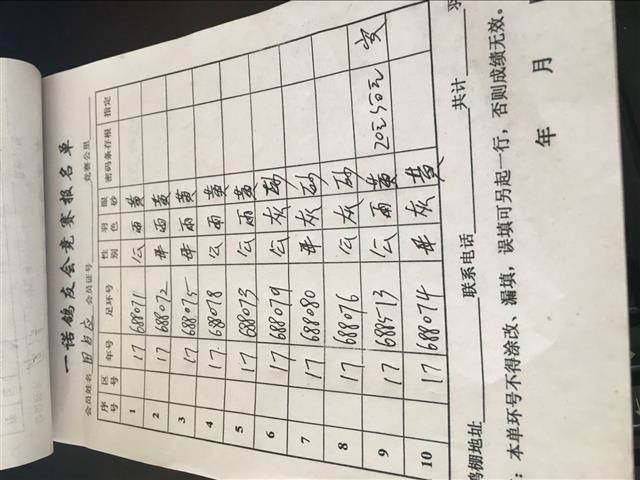 一诺鸽友会竞赛报名单
会员姓名 田 会员证号 竞赛公里
序号 区号 年号 足环号 性别 羽色 眼砂 密码条存根 指定
1 17 688071 公 雨 黄
2 17 688072 母 雨 黄
3 17 688075 母 雨 黄
4 17 688078 公 雨 黄
5 17 688073 公 雨 黄
6 17 688079 公 灰 砂
7 17 688080 母 灰 砂
8 17 688076 公 灰 砂
9 17 688513 公 雨 黄
10 17 688074 母 灰 黄
鸽棚地址 联系电话 共计 羽
：本单环号不得涂改、漏填，误填可另起一行，否则成绩无效。
年 月